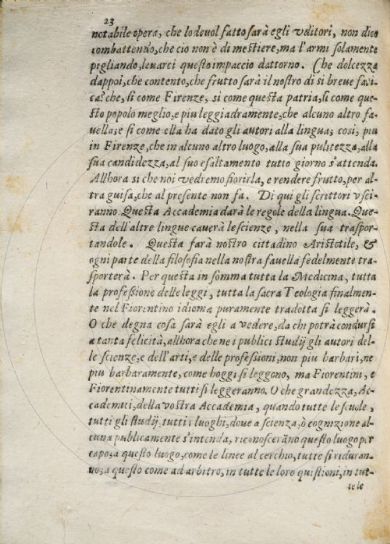 23
notabile opera, che lodeuol fatto sarà egli vditori, non dico
combattendo, che cio non è di mestiere, ma l'armi solamente
pigliando, leuarci questo impaccio dattorno. Che dolcezza
dappoi, che contento, che frutto sarà il nostro di si breue fati-
ca? che, sì come Firenze, si come questa patria, sì come que
sto popolo meglio, e piu leggiadramente, che alcuno altro fa-
uella; e si come ella ha dato gli autori alla lingua; così, piu
in Firenze, che in alcuno altro luogo, alla sua pulitezza, alla
sua candidezza, al suo esaltamento tutto giorno s'attenda.
Allhora si che noi vedremo fiorirla, e rendere frutto, per al-
tra guisa, che al presente non fa. Di qui gli scrittori vsci-
ranno. Questa Accademia darà le regole della lingua. Que-
sta dell'altre lingue cauerà le scienze, nella sua traspor-
tandole. Questa farà nostro cittadino Aristotile, &
ogni parte della filosofia nella nostra fauella fedelmente tra-
sporterà. Per questa in somma tutta la Medicina, tutta
la professione delle leggi, tutta la sacra Teologia finalmen-
te nel Fiorentino idioma puramente tradotta si leggerà.
O che degna cosa sarà egli a vedere, da chi potrà condursi
a tanta felicità, allhora che ne i publici studij gli autori del-
le scienze, e dell'arti, e delle professioni, non piu barbari, ne
piu barbaramente, come hoggi si leggono, ma Fiorentini, e
Fiorentinamente tutti si leggeranno. O che grandezza, Ac-
cademici, della vostra Accademia, quando tutte le scuole,
tutti gli studij, tutti i luoghi, doue a scienza, ò cognizione al-
cuna publicamente s'intenda, riconosceranno questo luogo per
capo, a questo luogo, come le linee al cerchio, tutte si riduran-
no, a questo come ad arbitro, in tutte le loro quistioni, in tut-
te le